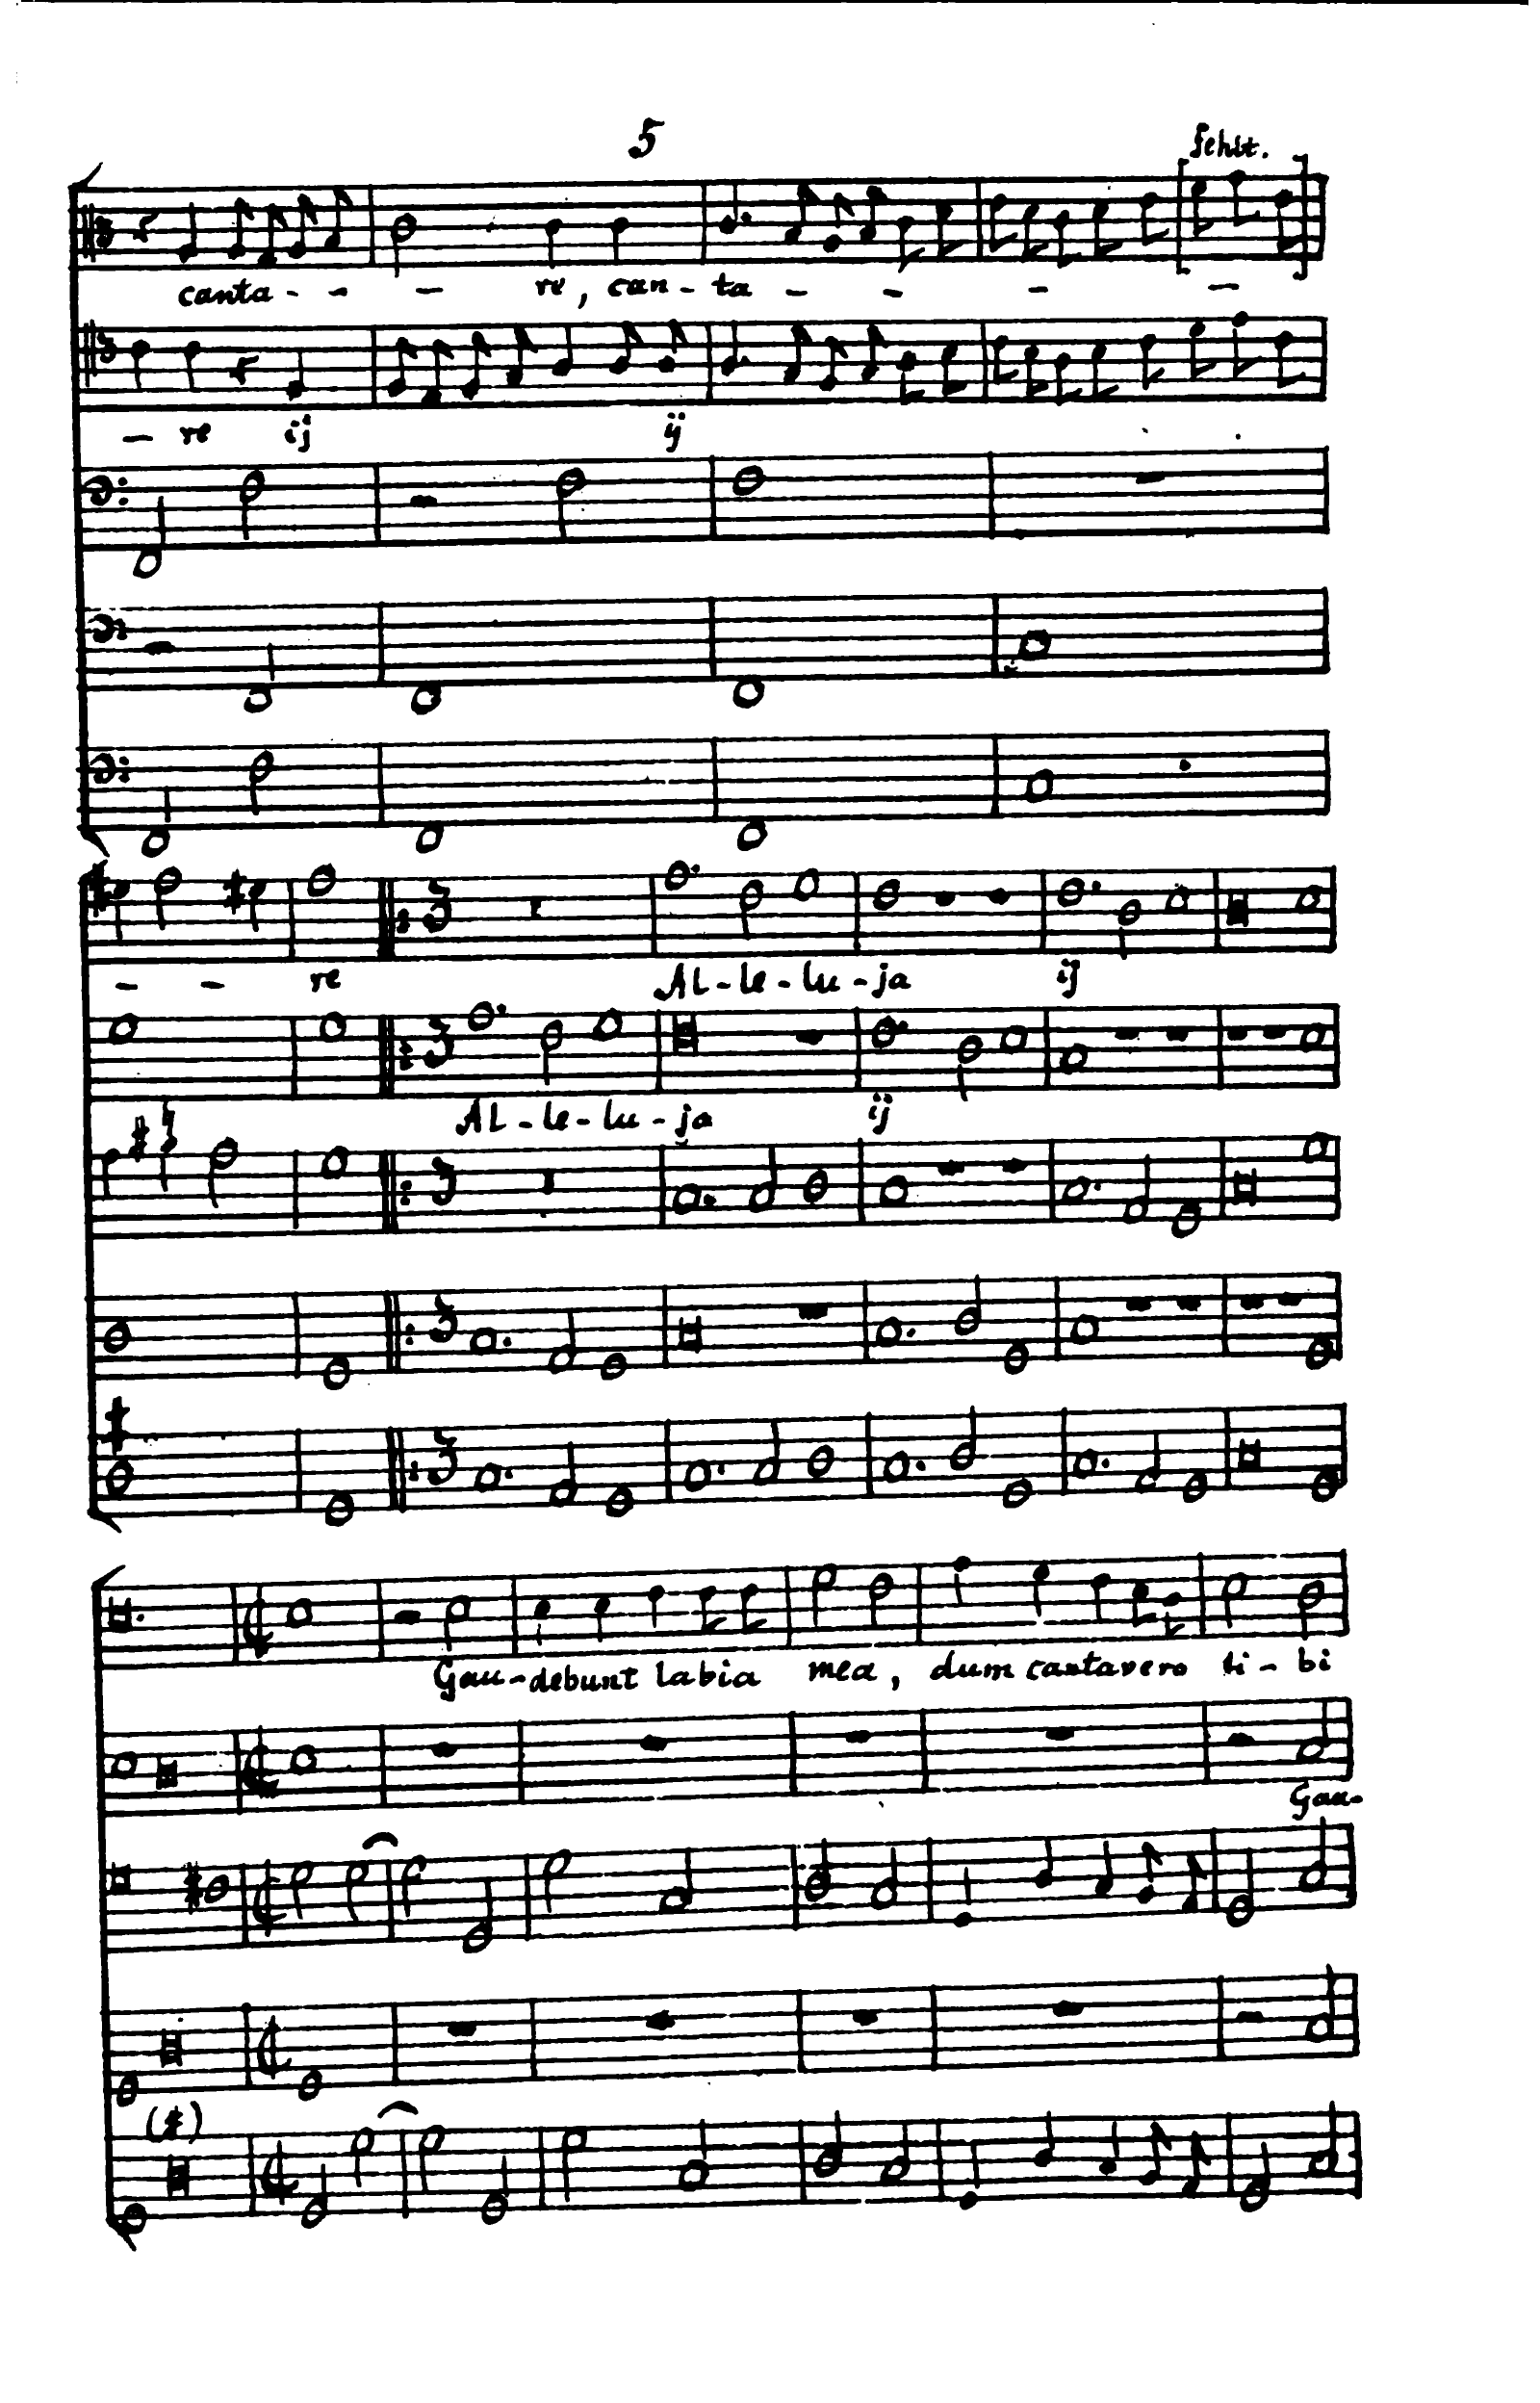 5
fehlt.
canta - - - re, can - ta - - - -
- re ij ij
- - re Al - le - lu - ja ij
Al - le - lu - ja ij
Gau - debunt labia mea, dum cantavero ti - bi
Gau-